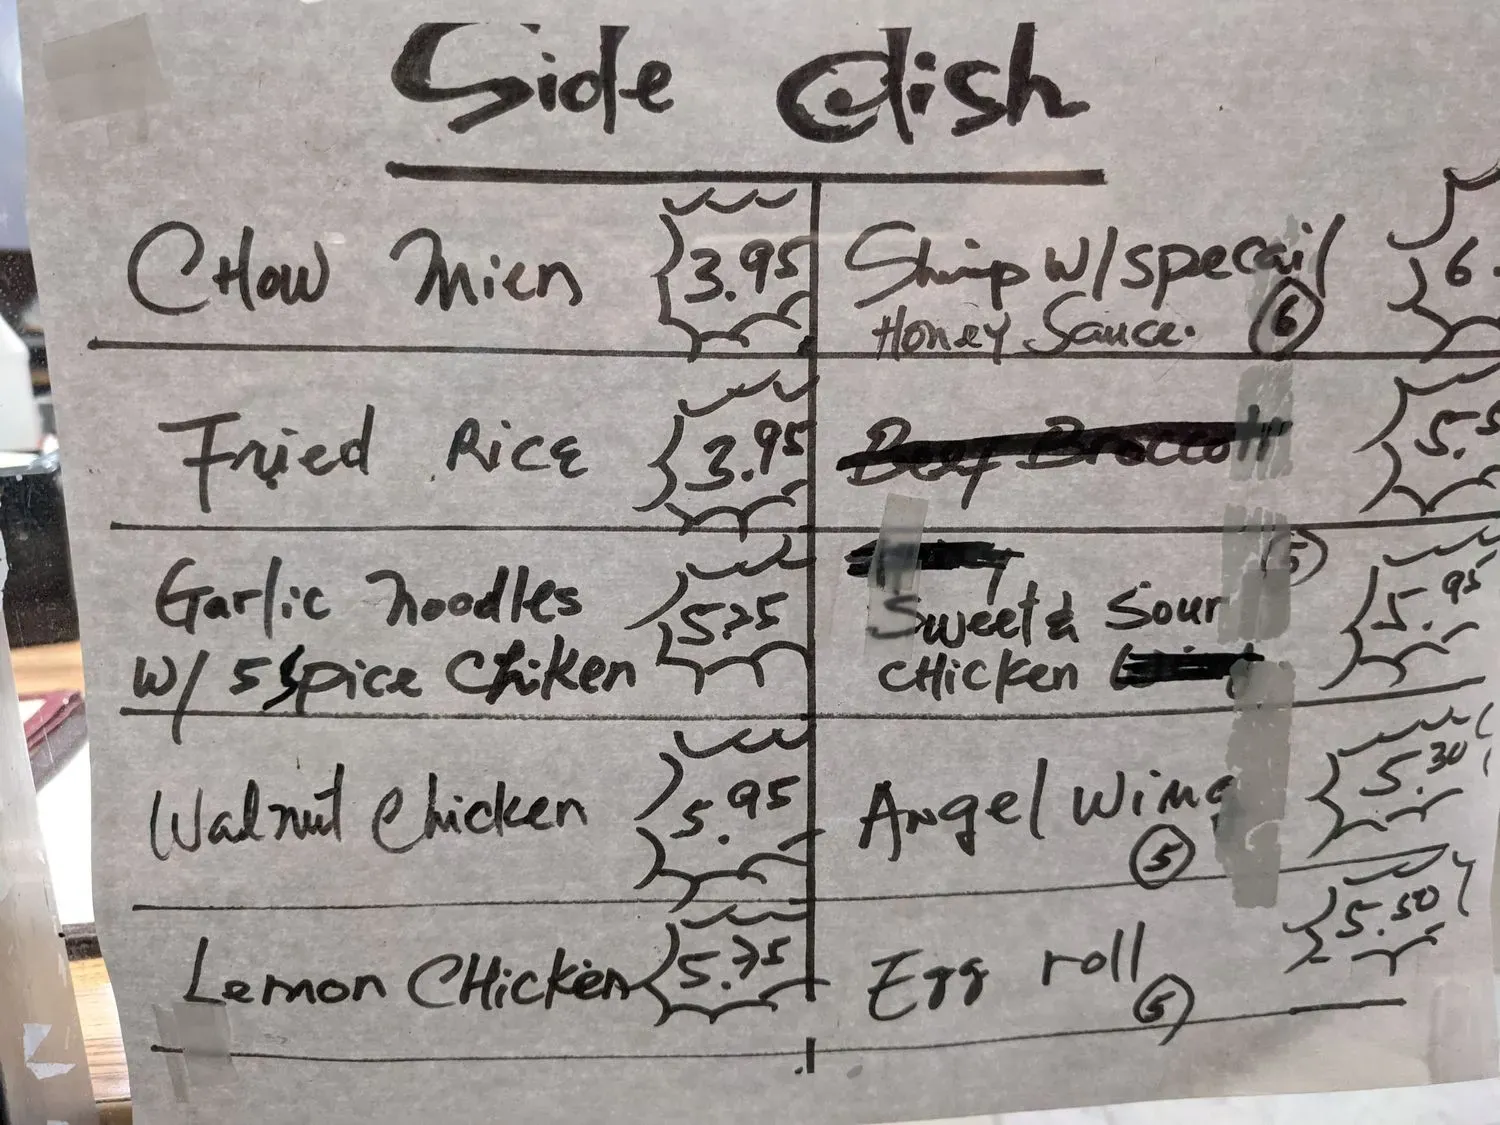 Side dish
CHow Mien 3.95
Fried Rice 3.95
Garlic Noodles
W/ 5 Spice Chiken 5.75
Walnut Chicken 5.95
Lemon CHicken 5.75
Shimp W/ specail
Honey Sauce. 6 6.
Beef Broccoli 5.5
5
Sweet & Sour
CHicken 5.95
Angel Wing 5.30
5
Egg roll 5.50
5